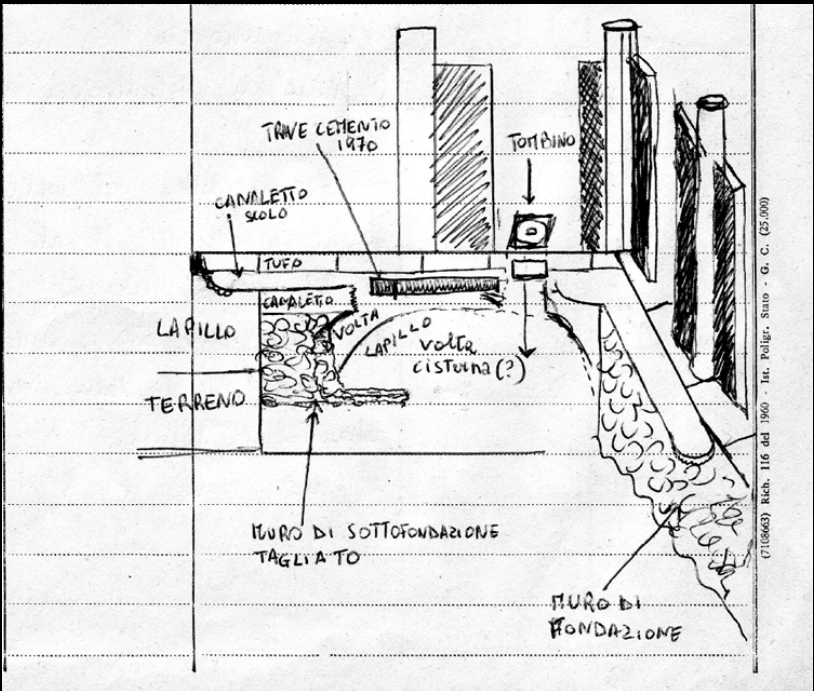 TRAVE CEMENTO
1970
TOMBINO
CANALETTO
SCOLO
TUFO
CANALETTO
LAPILLO
VOLTA
LAPILLO
volta
cisterna (?)
TERRENO
MURO DI SOTTOFONDAZIONE
TAGLIATO
MURO DI
FONDAZIONE
(7108663) Rich. 116 del 1960 - Ist. Poligr. Stato - G. C. (25.000)